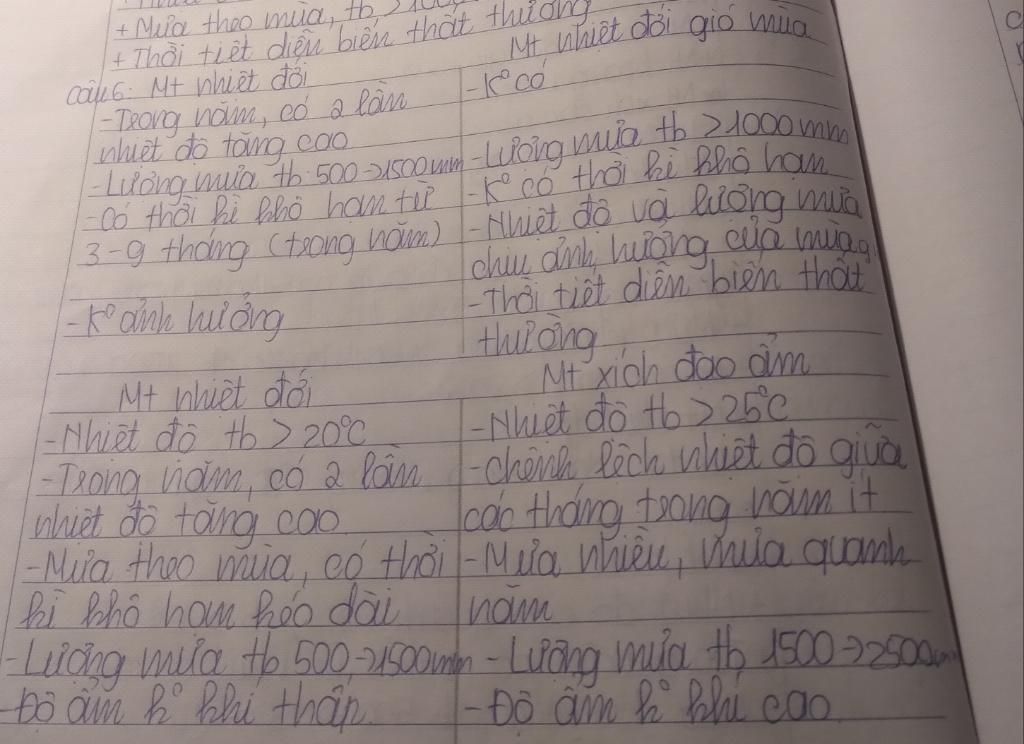 + Mưa theo mùa, tb >1000
+ Thời tiết diễn biến thất thường
Câu 6: Mt nhiệt đới
Mt nhiệt đới gió mùa
- Trong năm, có 2 lần
nhiệt độ tăng cao
- Lượng mưa tb 500->1500mm
- Có thời kì khô hạn từ
3-9 tháng (trong năm)
- K° ảnh hưởng
- K° có
- Lượng mưa tb >1000mm
- K° có thời kì khô hạn
- Nhiệt độ và lượng mưa
chịu ảnh hưởng của mùa g
- Thời tiết diễn biến thất
thường
Mt nhiệt đới
Mt xích đạo ẩm
- Nhiệt độ tb > 20°C
- Trong năm, có 2 lần
nhiệt độ tăng cao
- Mưa theo mùa, có thời
kì khô hạn kéo dài
- Lượng mưa tb 500->1500mm
- Độ ẩm k° khí thấp
- Nhiệt độ tb > 25°C
- Chênh lệch nhiệt độ giữa
các tháng trong năm ít
- Mưa nhiều, mưa quanh
năm
- Lượng mưa tb 1500->2500mm
- Độ ẩm k° khí cao